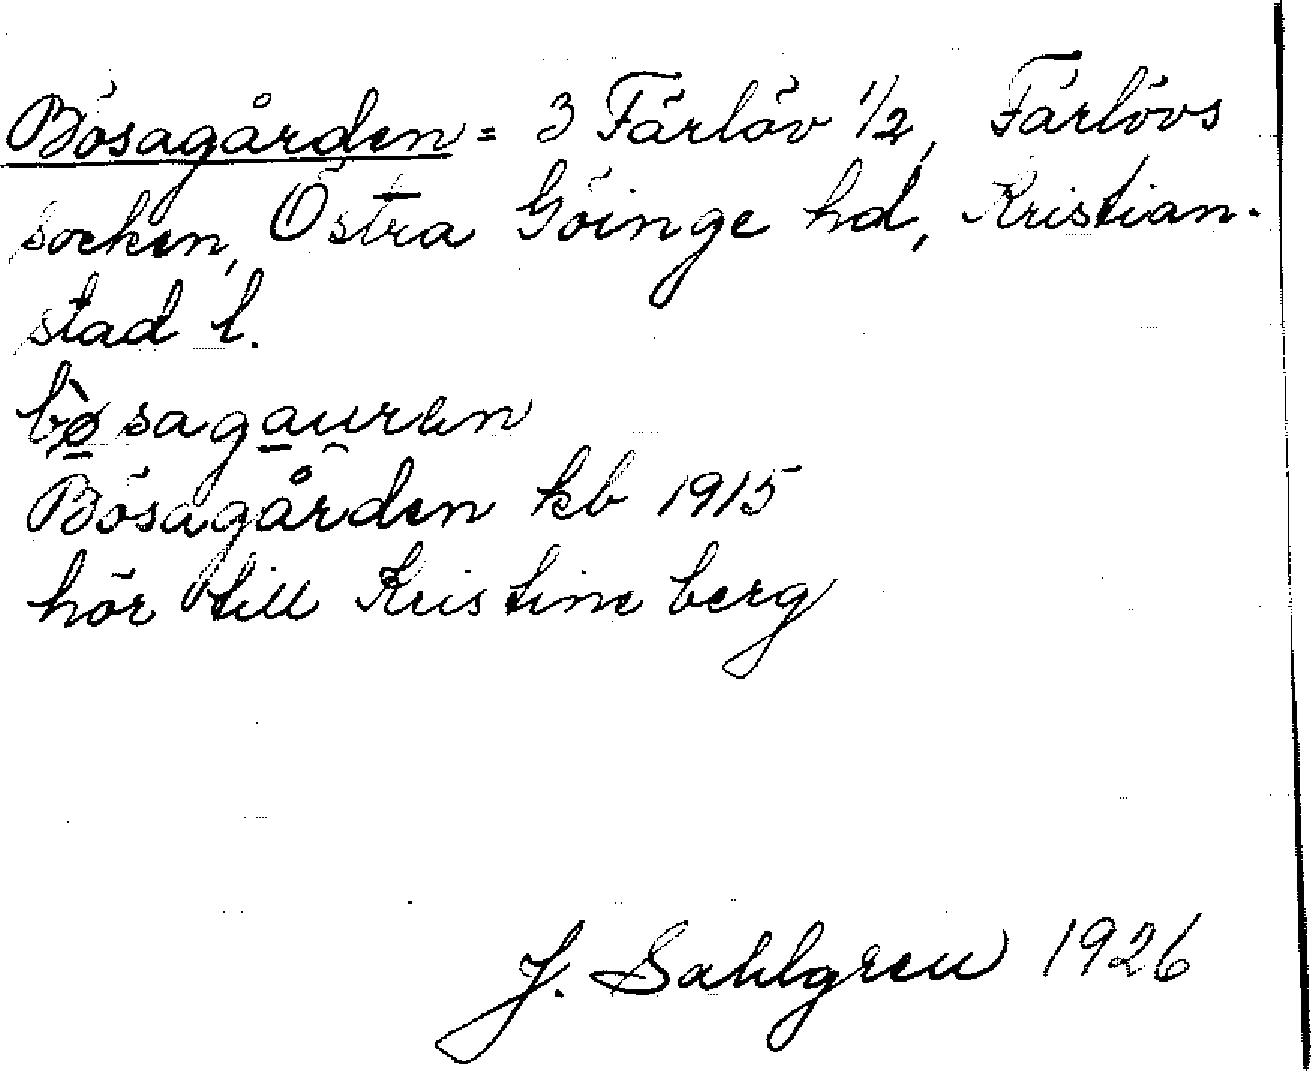 Bösagården = 3 Färlöv 1/2, Färlövs
socken, Östra Göinge hd, Kristian-
stad l.
bø̀sagau̯ren
Bösagården kb 1915
hör till Kristineberg
J. Sahlgren 1926